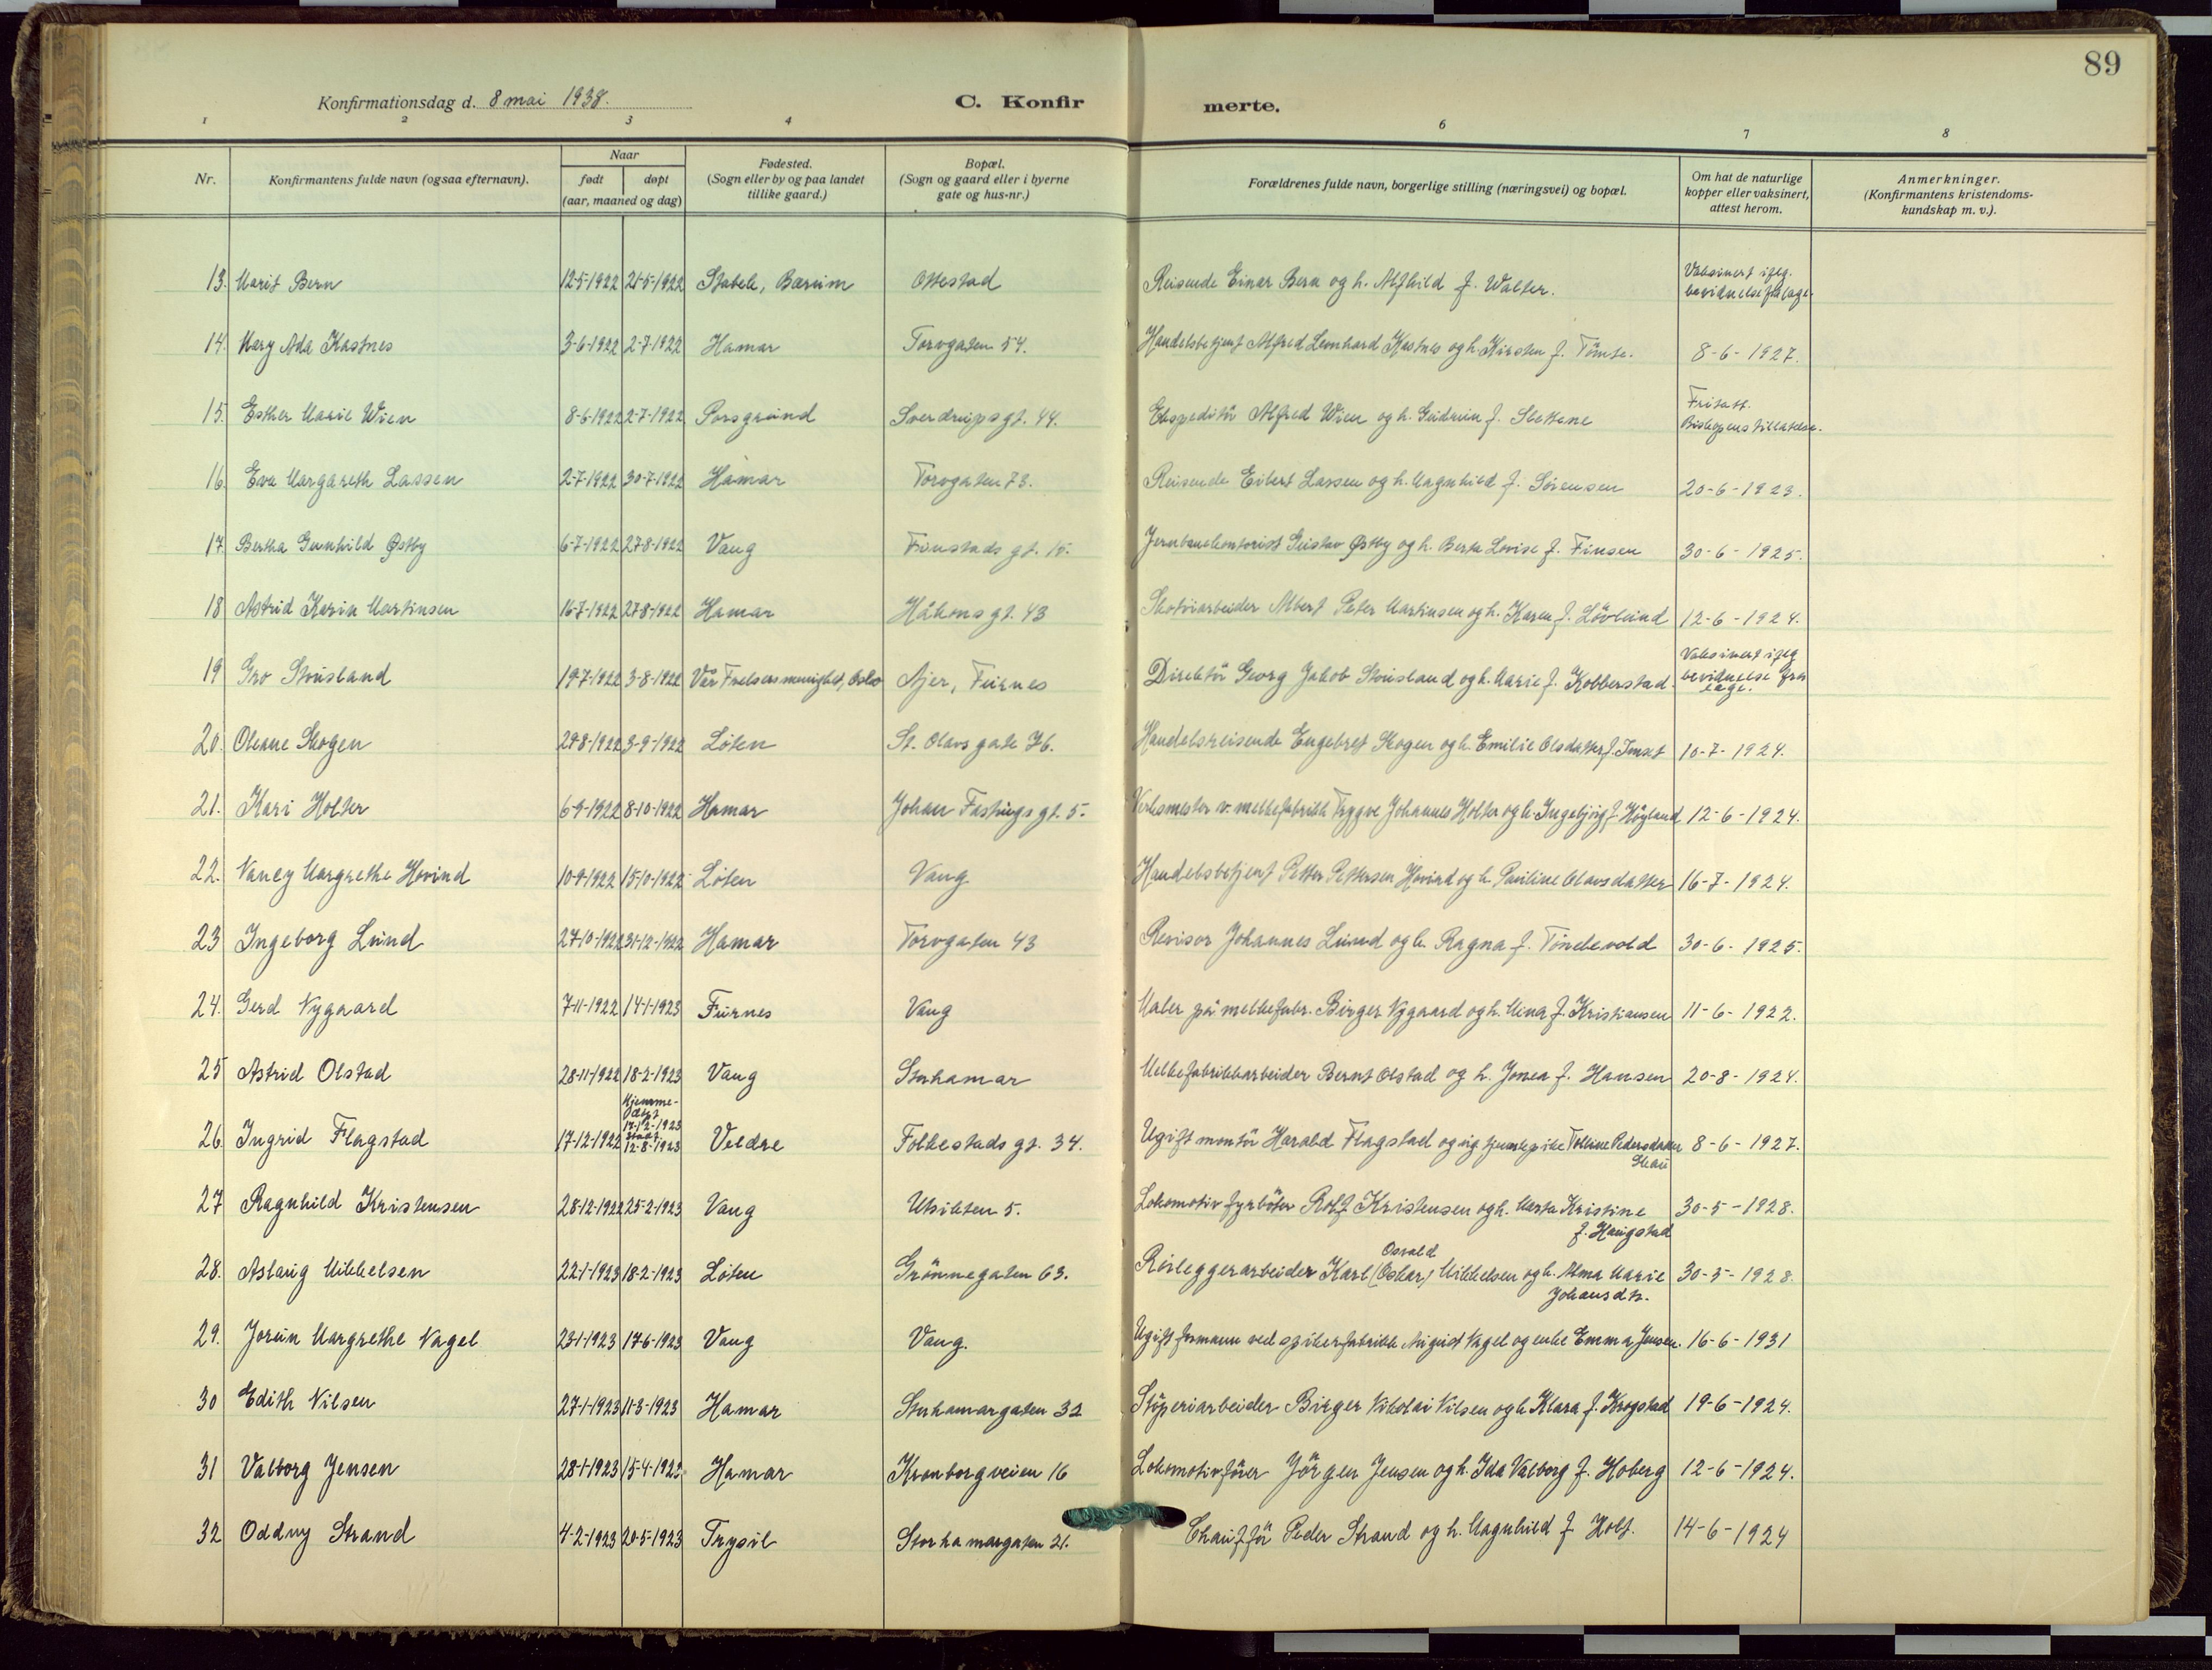 89
Konfirmationsdag d. 8 mai 1938.
C. Konfirmerte.
1 2 3 4 6 7 8
Nr. Konfirmantens fulde navn (ogsaa efternavn). Naar født døpt (aar, maaned og dag) Fødested. (Sogn eller by og paa landet tillike gaard.) Bopæl. (Sogn og gaard eller i byerne gate og hus-nr.) Forældrenes fulde navn, borgerlige stilling (næringsvei) og bopæl. Om hat de naturlige kopper eller vaksinert, attest herom. Anmerkninger. (Konfirmantens kristendomskundskap m. v.).
13. Marit Bern 12-5-1922 21-5-1922 Stabek, Bærum Ottestad Reisende Einar Bern og h. Alfhild f. Walter. Vaksinert iflg. bevidnelse fra læge.
14. Mary Ada Kastnes 3-6-1922 2-7-1922 Hamar Torvgaten 54. Handelsbetjent Alfred Leonhard Kastnes og h. Kirsten f. Tömte. 8-6-1927.
15. Esther Marie Wien 8-6-1922 2-7-1922 Porsgrund Sverdrupsgt. 44. Ekspeditör Alfred Wien og h. Gudrun f. Slettene Fritatt. Biskopens tillatelse.
16. Eva Margareth Lassen 2-7-1922 30-7-1922 Hamar Torvgaten 73. Reisende Eilert Lassen og h. Magnhild f. Sörensen 20-6-1923.
17. Bertha Gunhild Østby 6-7-1922 27-8-1922 Vang Finstads gt. 15. Jernbanekontorist Gustav Østby og h. Berta Lovise f. Finsen 30-6-1925.
18 Astrid Karin Martinsen 16-7-1922 27-8-1922 Hamar Håkons gt. 43 Skotöiarbeider Albert Peter Martinsen og h. Karen f. Lövlund 12-6-1924.
19 Gro Stousland 19-7-1922 3-8-1922 Vår Frelsers menighet, Oslo Ajer, Furnes Direktör Georg Jakob Stousland og h. Marie f. Kobberstad. Vaksinert iflg bevidnelse fra læge.
20. Oleane Skogen 27-8-1922 3-9-1922 Löten St. Olavs gate 76. Handelsreisende Engebret Skogen og h. Emilie Olsdatter f. Imset 10-7-1924.
21. Kari Holter 6-9-1922 8-10-1922 Hamar Johan Fastings gt. 5. Verksmester v. melkefabrikk Tryggve Johannes Holter og h. Ingebjörg f. Höyland 12-6-1924.
22. Nancy Margrethe Hovind 10-9-1922 15-10-1922 Löten Vang Handelsbetjent Petter Pettersen Hovind og h. Pauline Olavsdatter 16-7-1924.
23 Ingeborg Lund 27-10-1922 31-12-1922 Hamar Torvgaten 43 Revisor Johannes Lund og h. Ragna f. Tönebevold 30-6-1925.
24. Gerd Nygaard 7-11-1922 14-1-1923 Furnes Vang Maler på melkefabr. Birger Nygaard og h. Mina f. Kristiansen 11-6-1922.
25 Astrid Olstad 28-11-1922 18-2-1923 Vang Storhamar Melkefabrikkarbeider Bernt Olstad og h. Jonea f. Hansen 20-8-1924.
26. Ingrid Flagstad 17-12-1922 Hjemmedöpt 17-12-1923 12-8-1923 Veldre Folkestads gt. 34. Ugift montör Harald Flagstad og ug. tjenestepike Tolline Pedersdatter Skau 8-6-1927.
27 Ragnhild Kristensen 28-12-1922 25-2-1923 Vang Utsikten 5. Lokomotiv fyrböter Rolf Kristensen og h. Marta Kristine f. Haugstad 30-5-1928.
28. Aslaug Mikkelsen 22-1-1923 18-2-1923 Löten Grönnegaten 63. Rörleggerarbeider Karl (Oskar) Osvald Mikkelsen og h. Alma Marie Johansdtr. 30-5-1928.
29. Jorun Margrethe Nagel 23-1-1923 17-6-1923 Vang Vang. Ugift formann ved spikerfabrikk August Nagel og enke Emma Jensen. 16-6-1931
30 Edith Nilsen 27-1-1923 11-3-1923 Hamar Storhamargaten 32 Stöperiarbeider Birger Nikolai Nilsen og h. Klara f. Krogstad 19-6-1924.
31 Valborg Jensen 28-1-1923 15-4-1923 Hamar Kronborgveien 16 Lokomotivförer Jörgen Jensen og h. Ida Valborg f. Hoberg 12-6-1924.
32 Oddny Strand 4-2-1923 20-5-1923 Trysil Storhamargaten 21. Chaufför Peder Strand og h. Magnhild f. Holt. 14-6-1924